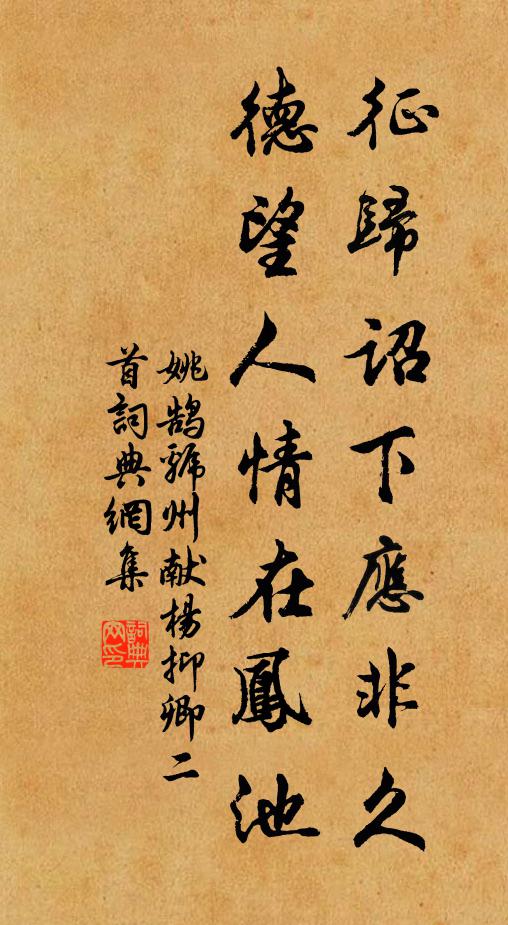 征歸詔下應非久
德望人情在鳳池
姚鵠虢州献楊抑卿二
首詞典網集
詞典網印